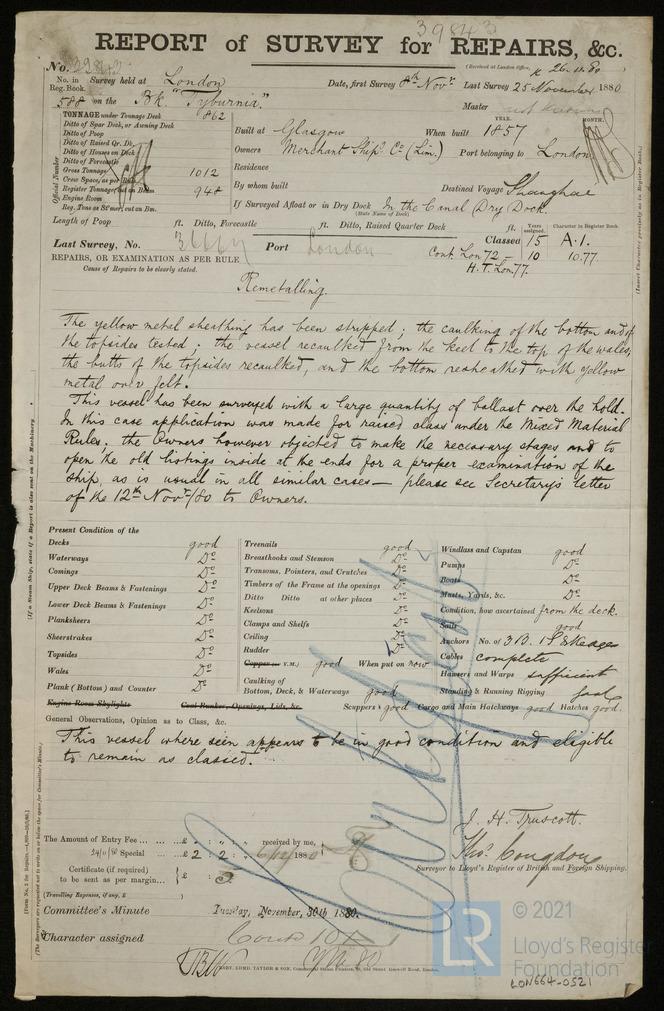 39843
REPORT of SURVEY for REPAIRS, &c.
(Received at London Office, 26.11.80
No. 39843
No. in Reg. Book. Survey held at London Date, first Survey 8th Novr. Last Survey 25 November 1880
588 on the Bk. "Tyburnia." Master
TONNAGE under Tonnage Deck 862
Ditto of Spar Deck, or Awning Deck
Ditto of Poop
Ditto of Raised Qr. Dk.
Ditto of Houses on Deck
Ditto of Forecastle
Gross Tonnage 1012
Crew Space, as per Rule
Register Tonnage, cut on Beam 948
Engine Room
Reg. Tons as St'mer, cut on Bm.
Official Number
YEAR. MONTH.
Built at Glasgow When built 1857
Owners Merchant Shipg. Co. (Lim.) Port belonging to London
Residence
By whom built Destined Voyage Shanghae
If Surveyed Afloat or in Dry Dock In the Canal Dry Dock.
(State Name of Dock)
Length of Poop ft. Ditto, Forecastle ft. Ditto, Raised Quarter Deck ft.
Years assigned. Character in Register Book.
Last Survey, No. Port London Classed 15 A.1.
Cont. Lon 72 - 10 10.77
H.T. Lon 77.
REPAIRS, OR EXAMINATION AS PER RULE
Cause of Repairs to be clearly stated.
Remetalling.
The yellow metal sheathing has been stripped; the caulking of the bottom and of
the topsides tested: the vessel recaulked from the keel to the top of the wales,
the butts of the topsides recaulked, and the bottom resheathed with yellow
metal over felt.
This vessel has been surveyed with a large quantity of ballast over the hold.
In this case application was made for raised class under the Mixed Material
Rules; the Owners however objected to make the necessary stages and to
open the old listings inside at the ends for a proper examination of the
ship, as is usual in all similar cases — please see Secretary's letter
of the 12th Novr/80 to Owners.
Present Condition of the
Decks good
Waterways Do
Comings Do
Upper Deck Beams & Fastenings Do
Lower Deck Beams & Fastenings Do
Planksheers Do
Sheerstrakes Do
Topsides Do
Wales Do
Plank (Bottom) and Counter Do
Engine Room Skylights Coal Bunker Openings, Lids, &c.
Treenails good
Breasthooks and Stemson Do
Transoms, Pointers, and Crutches Do
Timbers of the Frame at the openings Do
Ditto Ditto at other places Do
Keelsons Do
Clamps and Shelfs Do
Ceiling Do
Rudder Do
Copper (or Y.M.) good When put on now
Caulking of
Bottom, Deck, & Waterways good
Scuppers good Cargo and Main Hatchways good Hatches good.
Windlass and Capstan good
Pumps Do
Boats Do
Masts, Yards, &c. Do
Condition, how ascertained from the deck.
Sails good
Anchors No. of 3B. 1S. & Kedges
Cables complete
Hawsers and Warps sufficient
Standing & Running Rigging good
General Observations, Opinion as to Class, &c.
This vessel where seen appears to be in good condition and eligible
to remain as classed.
J. H. Truscott.
The Amount of Entry Fee ... £ : : received by me,
24/11/80 Special ... £ 2 : 2 : 6/12/1880
Certificate (if required)
to be sent as per margin... £ : 5
(Travelling Expenses, if any, £ )
Thos. Congdon
Surveyor to Lloyd's Register of British and Foreign Shipping.
Committee's Minute Tuesday, November, 30th 1880.
Character assigned
© 2021
LR
Lloyd's Register
Foundation
LON664-0521